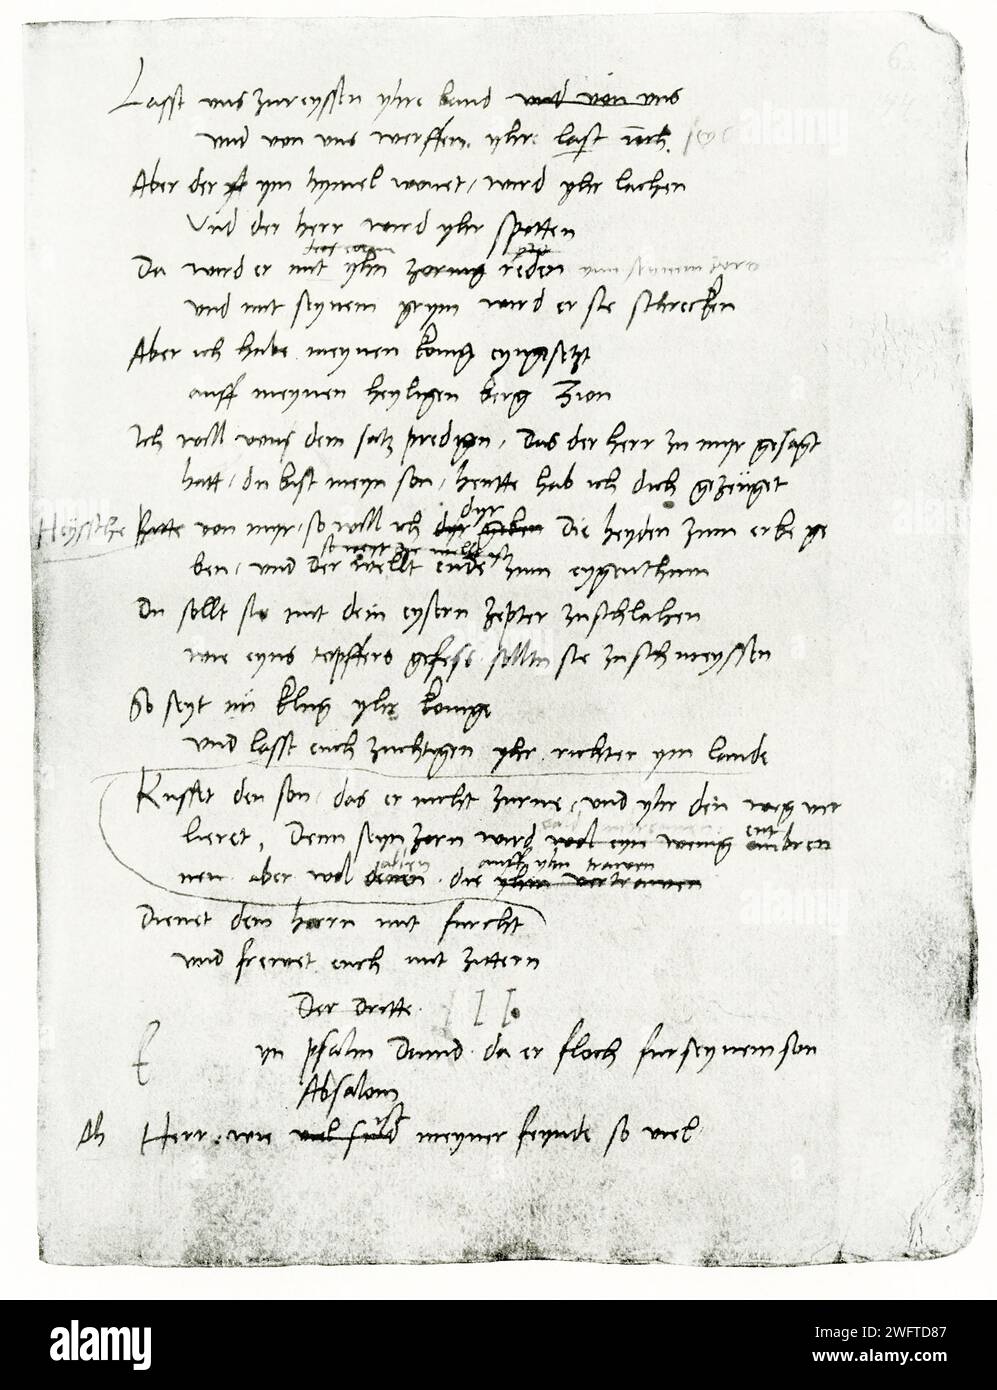 Lasst uns zureyssen yhre band und von uns
und von uns werffen. yhr last
Aber der ym hymel wonet, wird yhr lachen
Und der herr wird yhr spotten
Da wird er mit yhn zornig reden ynn seynem zorn
und mit seynem grym wird er sie schrecken
Aber ich habe meynen konig eyngesetzt
auff meynen heyligen berg Zion
Ich will von dem satz predigen, Das der herr zu myr gesagt
hatt, du bist meyn son, heutte hab ich dich gezeuget
dyr
Heyssche Bitte von myr, so will ich dyr geben die heyden zum erbe ge
ben, und der wellt ende zum eygenthum
Du sollt sie mit dem eysern zepter zuschlahen
wie eyns topffers gefess solltu sie zuschmeyssen
So seyt nu klug yhr konige
und lasst euch zuchtigen yhr richter ym lande
Kusset den son, das er nicht zurne, und yhr den weg ver
lieret, Denn seyn zorn wird wol eyn wenig ent anbren
allen auff yhn trawen
nen aber wol denen die yhm vertrawen
Dienet dem herrn mit furcht
und frewet euch mit zittern
Der Dritte III.
Eyn psalm David da er floch fur seynem son
Absalom
Ah Herr, wie viel sind meyner feynde so viel
alamy
Image ID: 2WFTD87
www.alamy.com